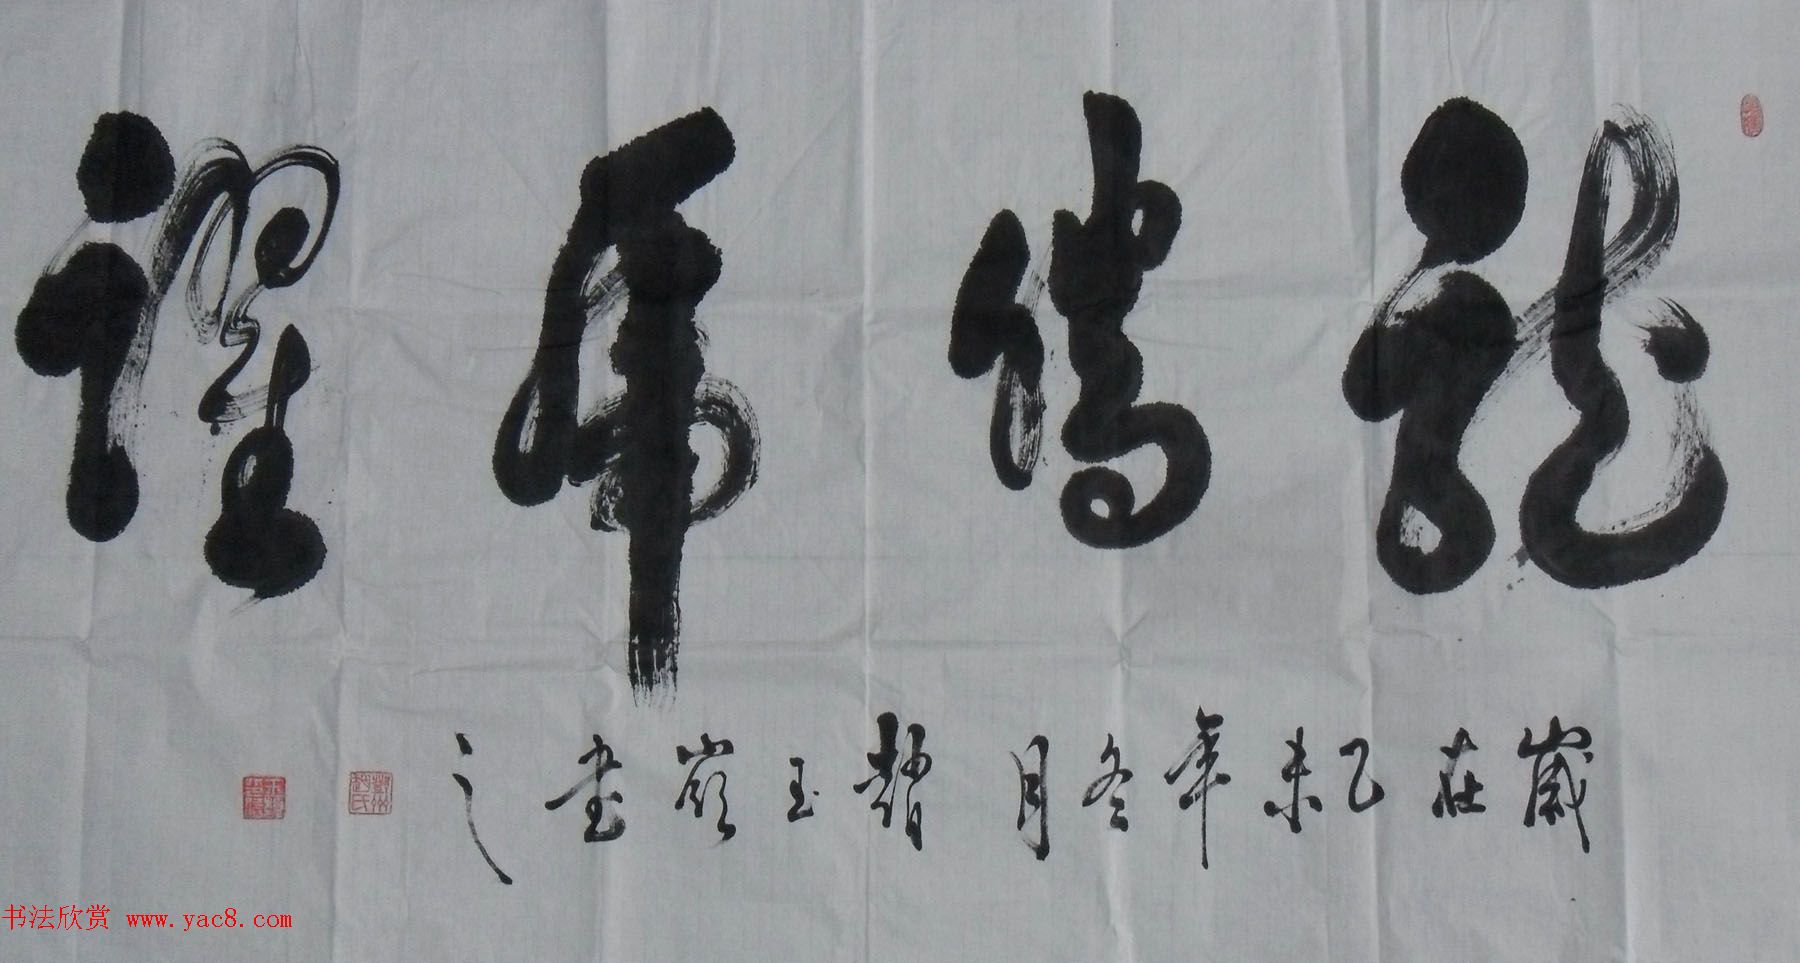 龍騰虎躍
歲在乙未年冬月趙玉嶺書之
书法欣赏 www.yac8.com